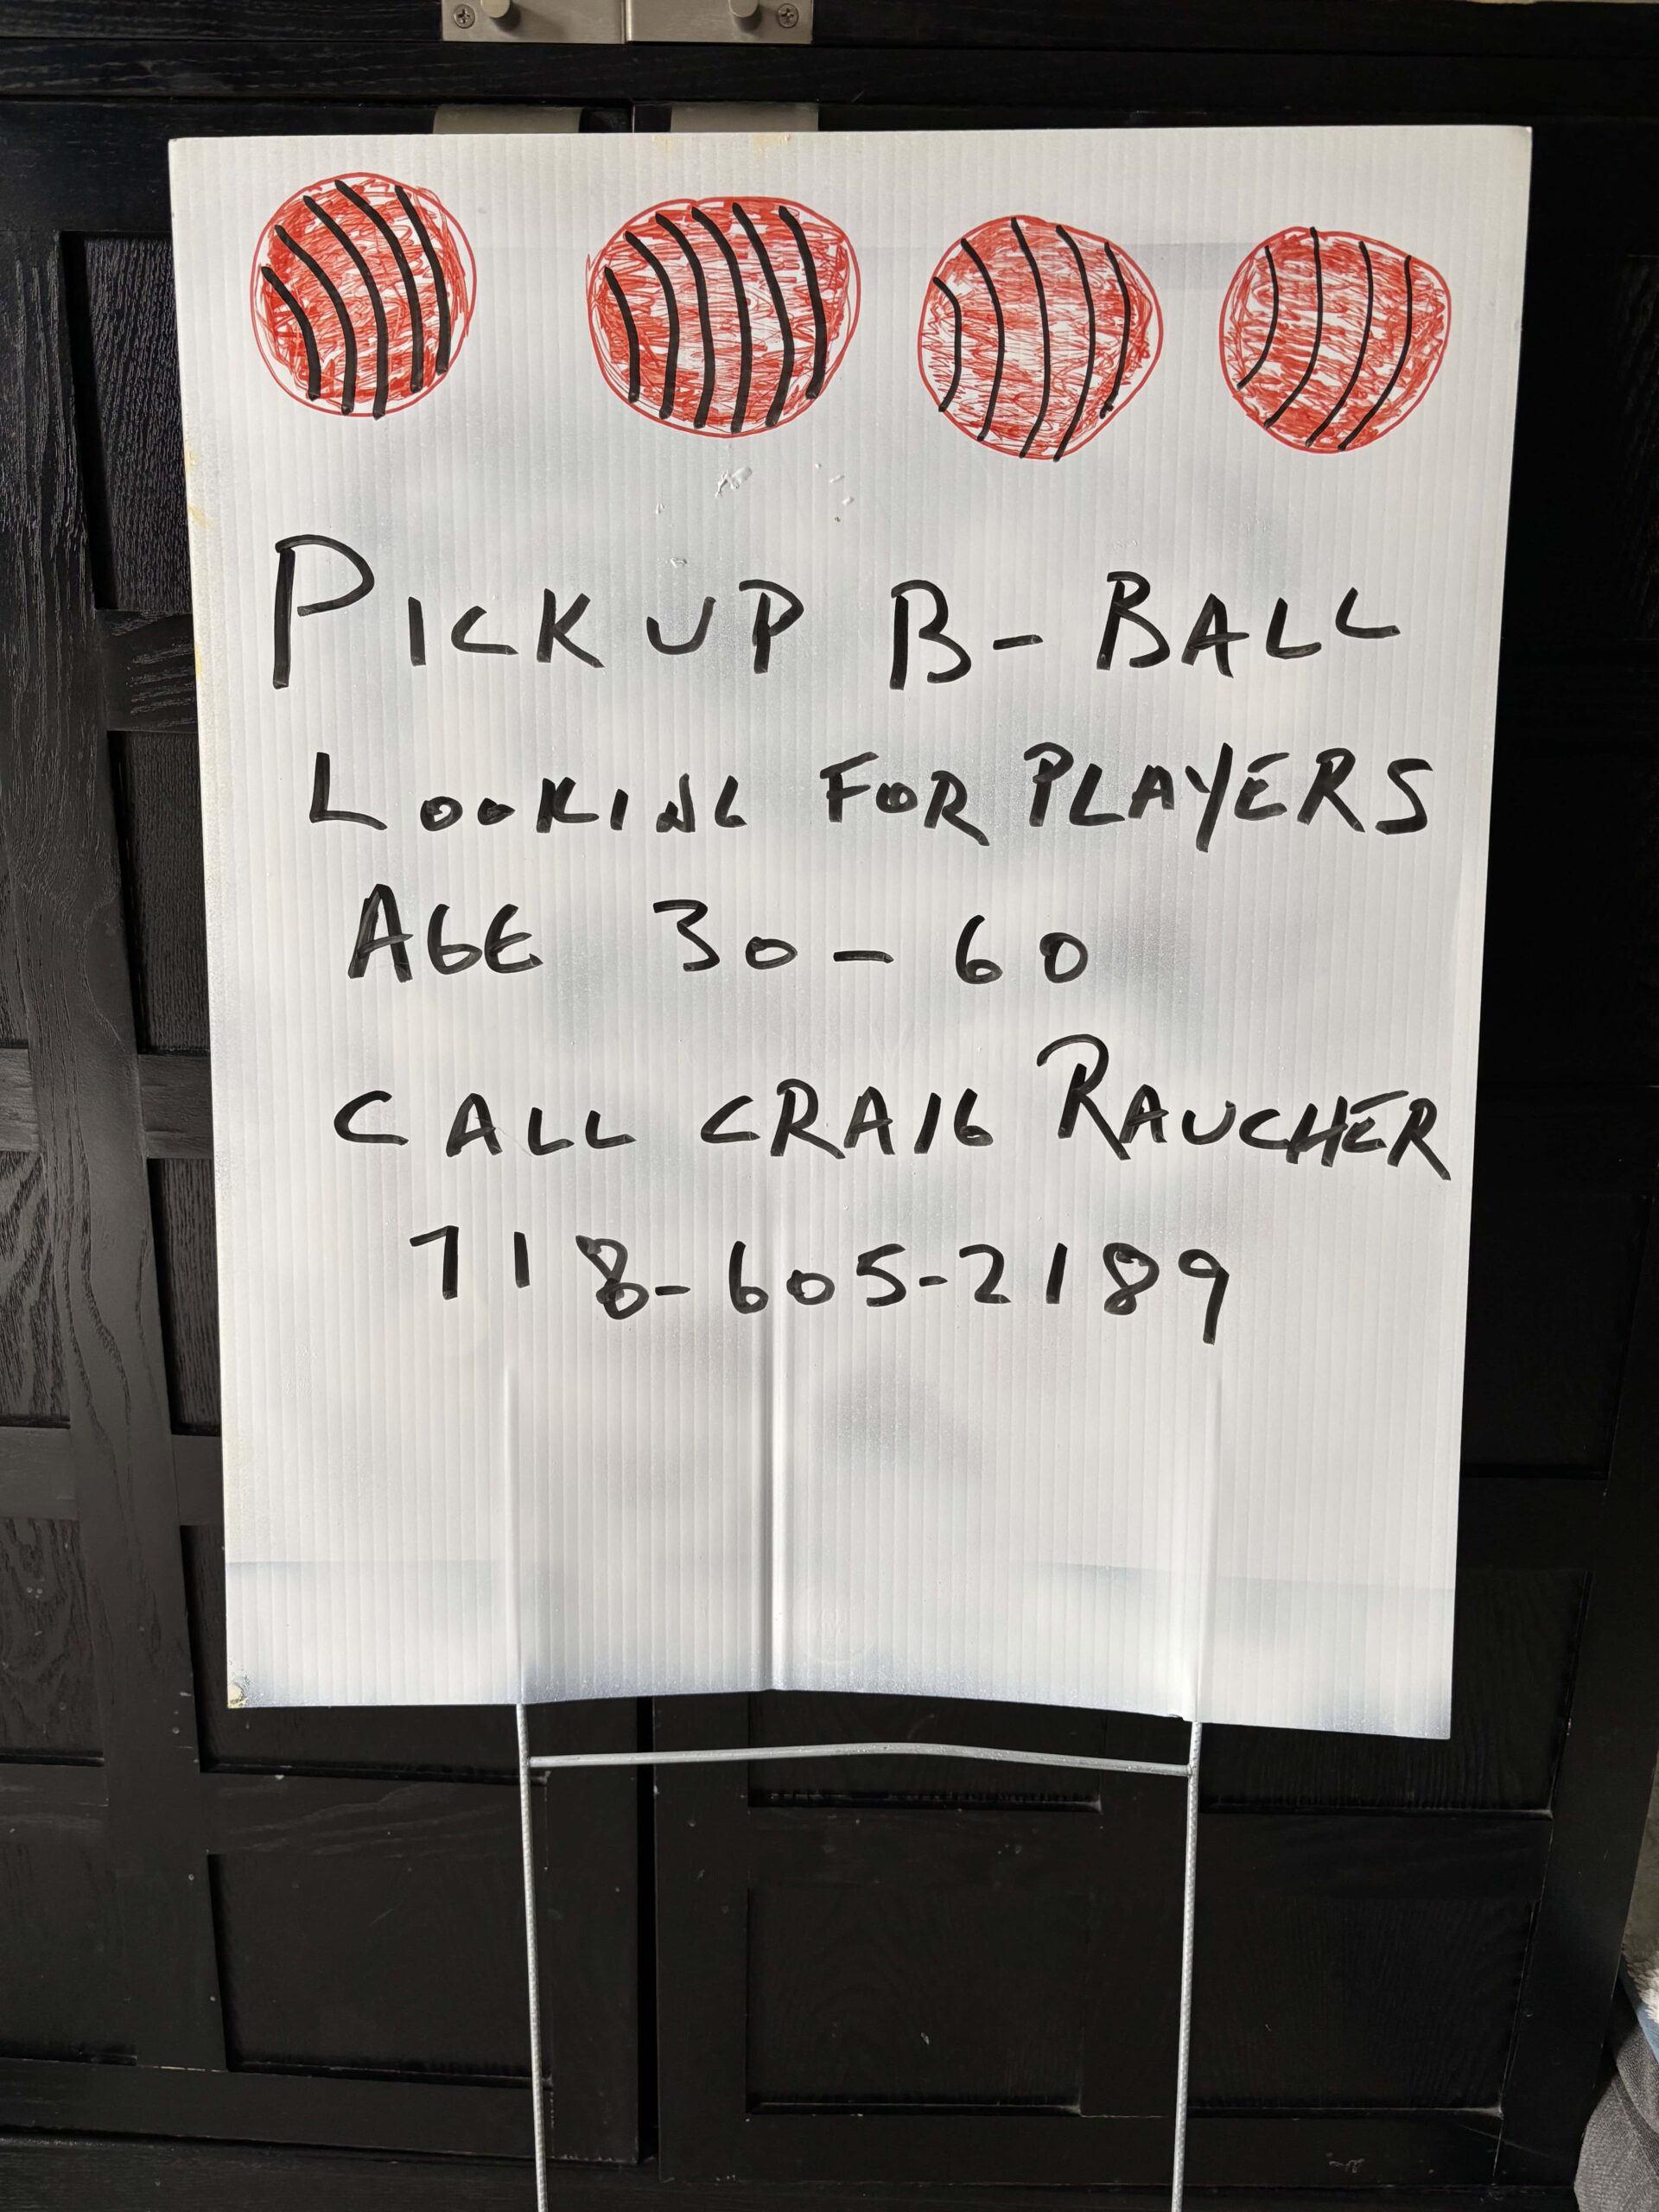 PICK UP B-BALL
LOOKING FOR PLAYERS
AGE 30-60
CALL CRAIG RAUCHER
718-605-2189